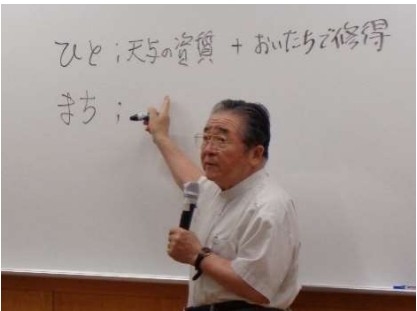 ひと;天与の資質 + おいたちで修得
まち;